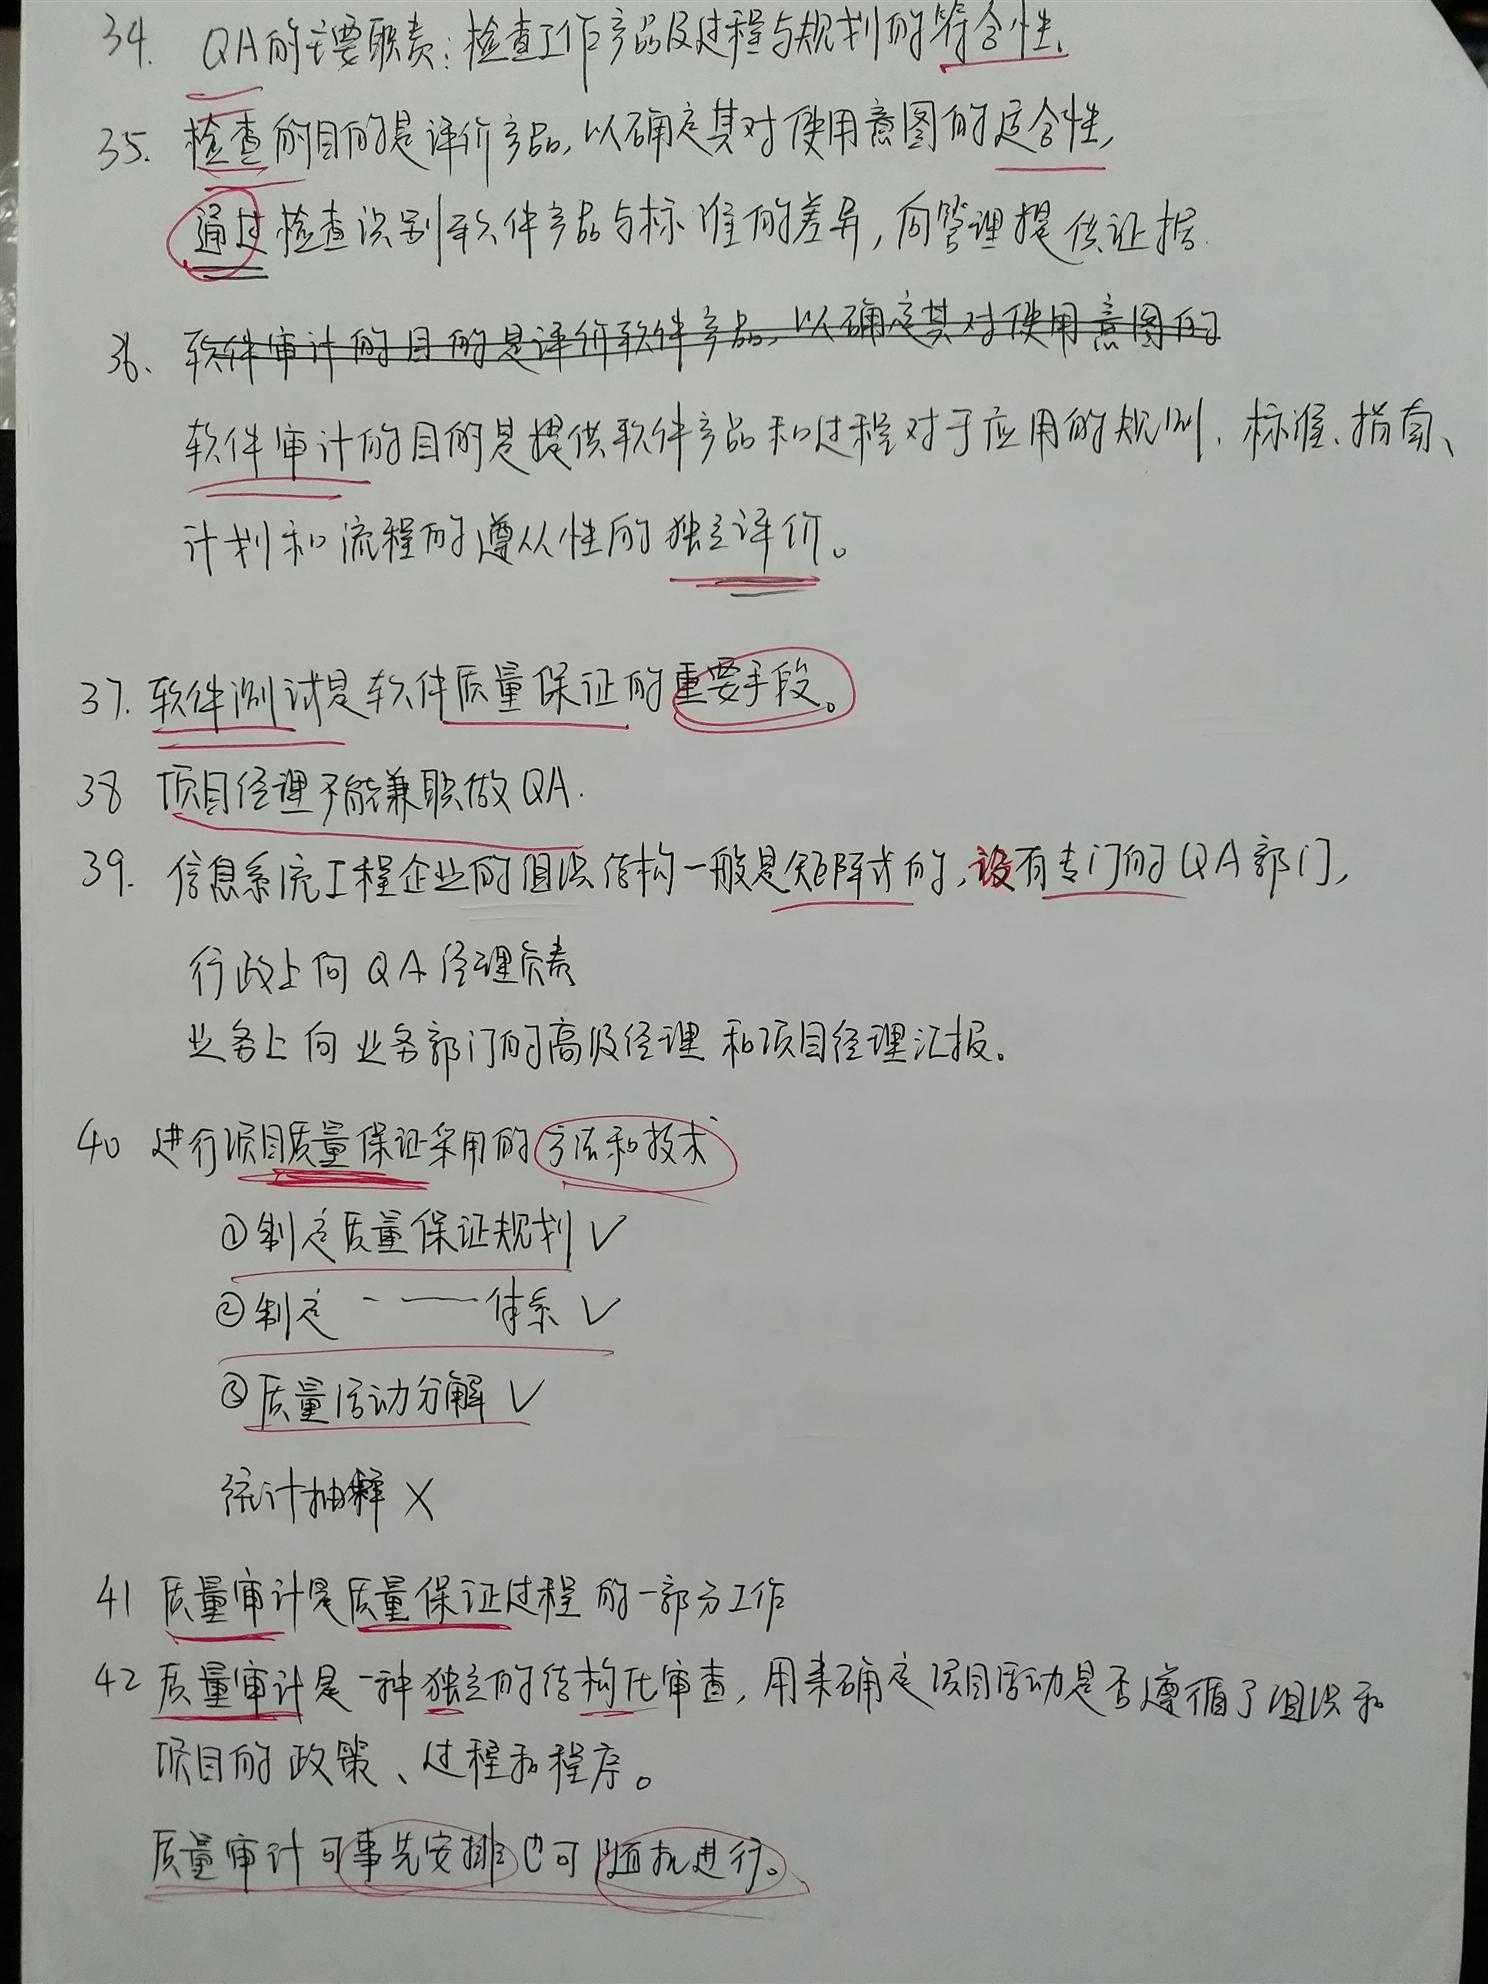 34. QA的主要职责：检查工作产品及过程与规划的符合性、
35. 检查的目的是评价产品，以确定其对使用意图的适合性，
通过检查识别软件产品与标准的差异，向管理提供证据.
36、软件审计的目的是评价软件产品，以确定其对使用意图的
软件审计的目的是提供软件产品和过程对于应用的规则、标准、指南、
计划和流程的遵从性的独立评价。
37. 软件测试是软件质量保证的重要手段。
38 项目经理不能兼职做QA.
39. 信息系统工程企业的组织结构一般是矩阵式的，设有专门的QA部门，
行政上向QA经理负责
业务上向业务部门的高级经理和项目经理汇报。
40 进行项目质量保证采用的方法和技术
①制定质量保证规划 √
②制定 - —— 体系 √
③质量活动分解 √
统计抽样 ×
41 质量审计是质量保证过程的一部分工作
42 质量审计是一种独立的结构化审查，用来确定项目活动是否遵循了组织和
项目的政策、过程和程序。
质量审计可事先安排也可随机进行。